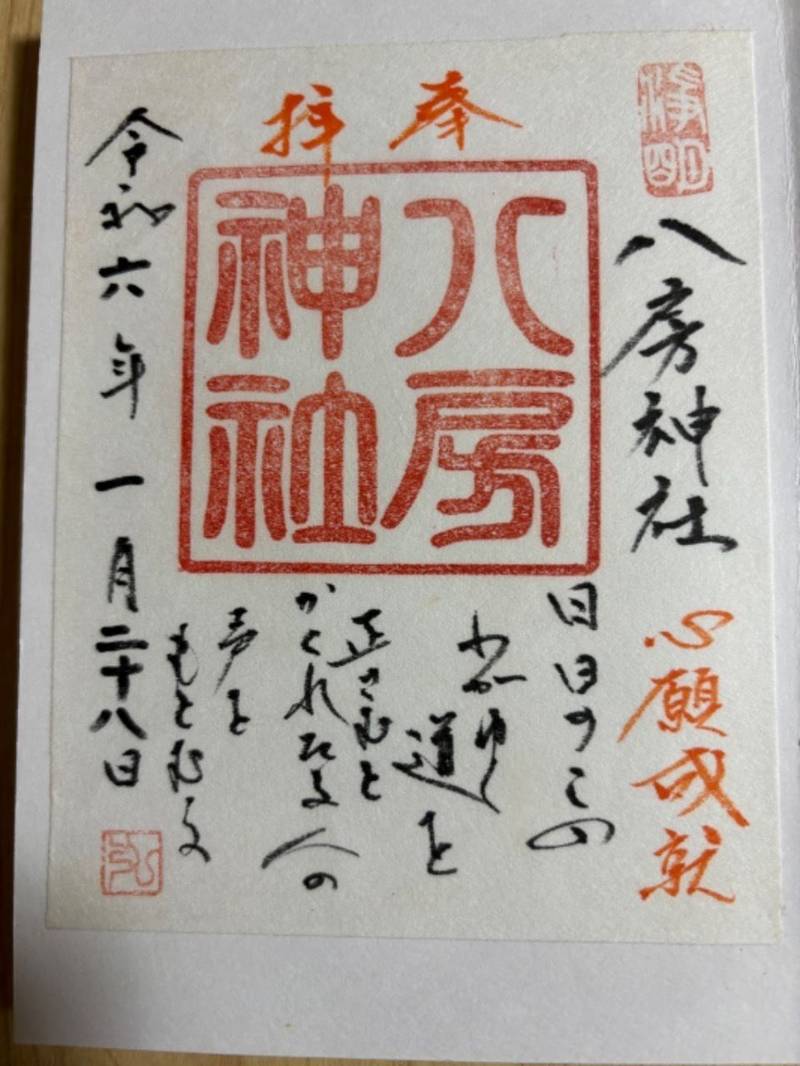 奉拝
八房神社
心願成就
八房神社
日日のこの
わがゆく道を
正さむと
かくれたる人の
声を
もとむる
令和六年一月二十八日